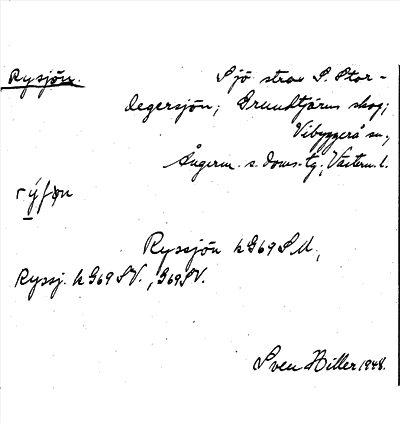 Rysjön. Sjö strax S. Stor-
degersjön; Grundtjärns skog;
Vibyggerå sn.,
Ångerm. s. doms.tg; Västern. l.
rýʃøn
Ryssjön k G69 S M,
Ryssj. k G69 SV., G69 SV.
Sven Hiller 1948.